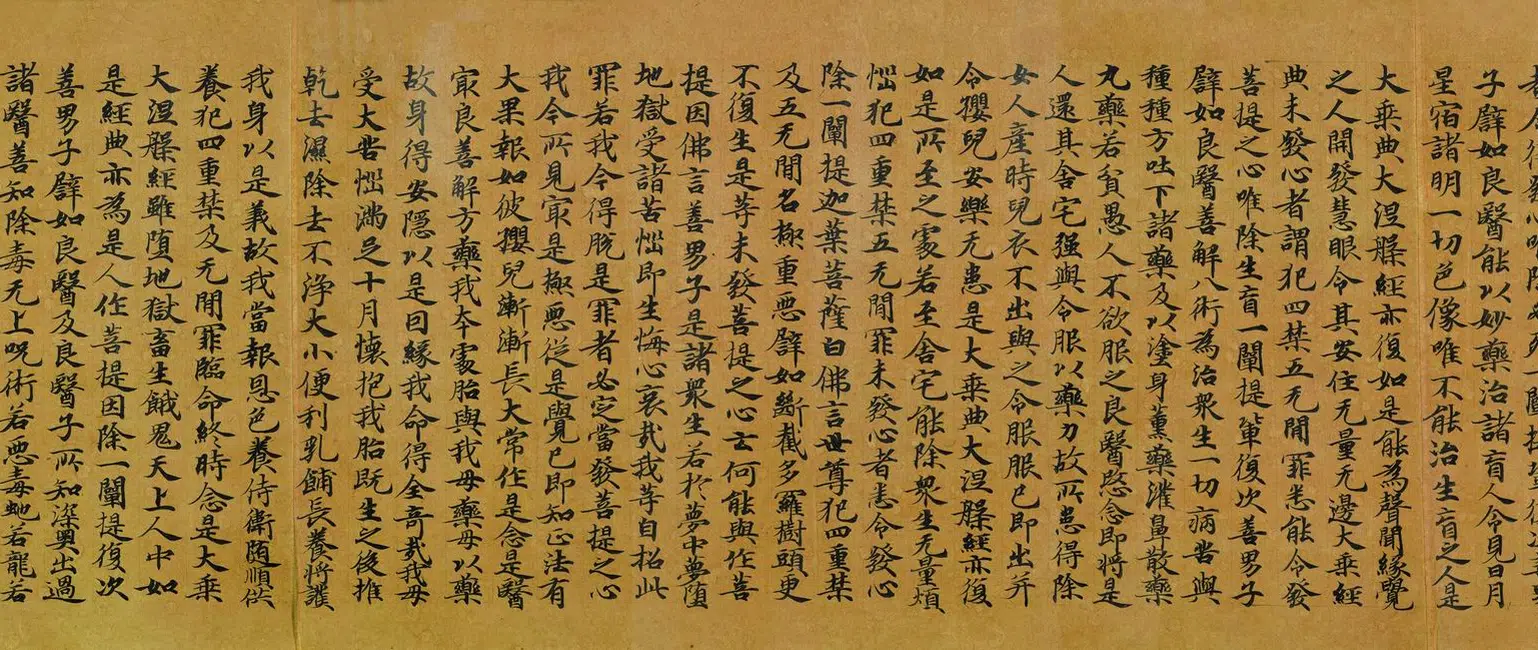 子譬如良醫能以妙藥治諸盲人令見日月
星宿諸明一切色像唯不能治生盲之人是
大乘典大涅槃經亦復如是能為聲聞緣覺
之人開發慧眼令其安住无量无邊大乘經
典未發心者謂犯四禁五无間罪悉能令發
菩提之心唯除生盲一闡提輩復次善男子
譬如良醫善解八術為治衆生一切病苦與
種種方吐下諸藥及以塗身薰藥灌鼻散藥
丸藥若貧愚人不欲服之良醫愍念即將是
人還其舍宅强與令服以藥力故所患得除
女人產時兒衣不出與之令服服已即出并
令孾兒安樂无患是大乘典大涅槃經亦復
如是所至之處若至舍宅能除衆生无量煩
惱犯四重禁五无間罪未發心者悉令發心
除一闡提迦葉菩薩白佛言世尊犯四重禁
及五无間名極重惡譬如斷截多羅樹頭更
不復生是等未發菩提之心云何能與作菩
提因佛言善男子是諸衆生若於夢中夢墮
地獄受諸苦惱即生悔心哀哉我等自招此
罪若我今得脫是罪者必定當發菩提之心
我今所見冣是極惡從是覺已即知正法有
大果報如彼孾兒漸漸長大常作是念是醫
冣良善解方藥我本處胎與我母藥母以藥
故身得安隱以是因緣我命得全奇哉我母
受大苦惱滿足十月懷抱我胎既生之後推
乾去濕除去不淨大小便利乳餔長養將護
我身以是義故我當報恩色養侍衛随順供
養犯四重禁及无間罪臨命終時念是大乘
大涅槃經雖墮地獄畜生餓鬼天上人中如
是經典亦為是人作菩提因除一闡提復次
善男子譬如良醫及良醫子所知深奧出過
諸醫善知除毒无上呪術若惡毒虵若龍若